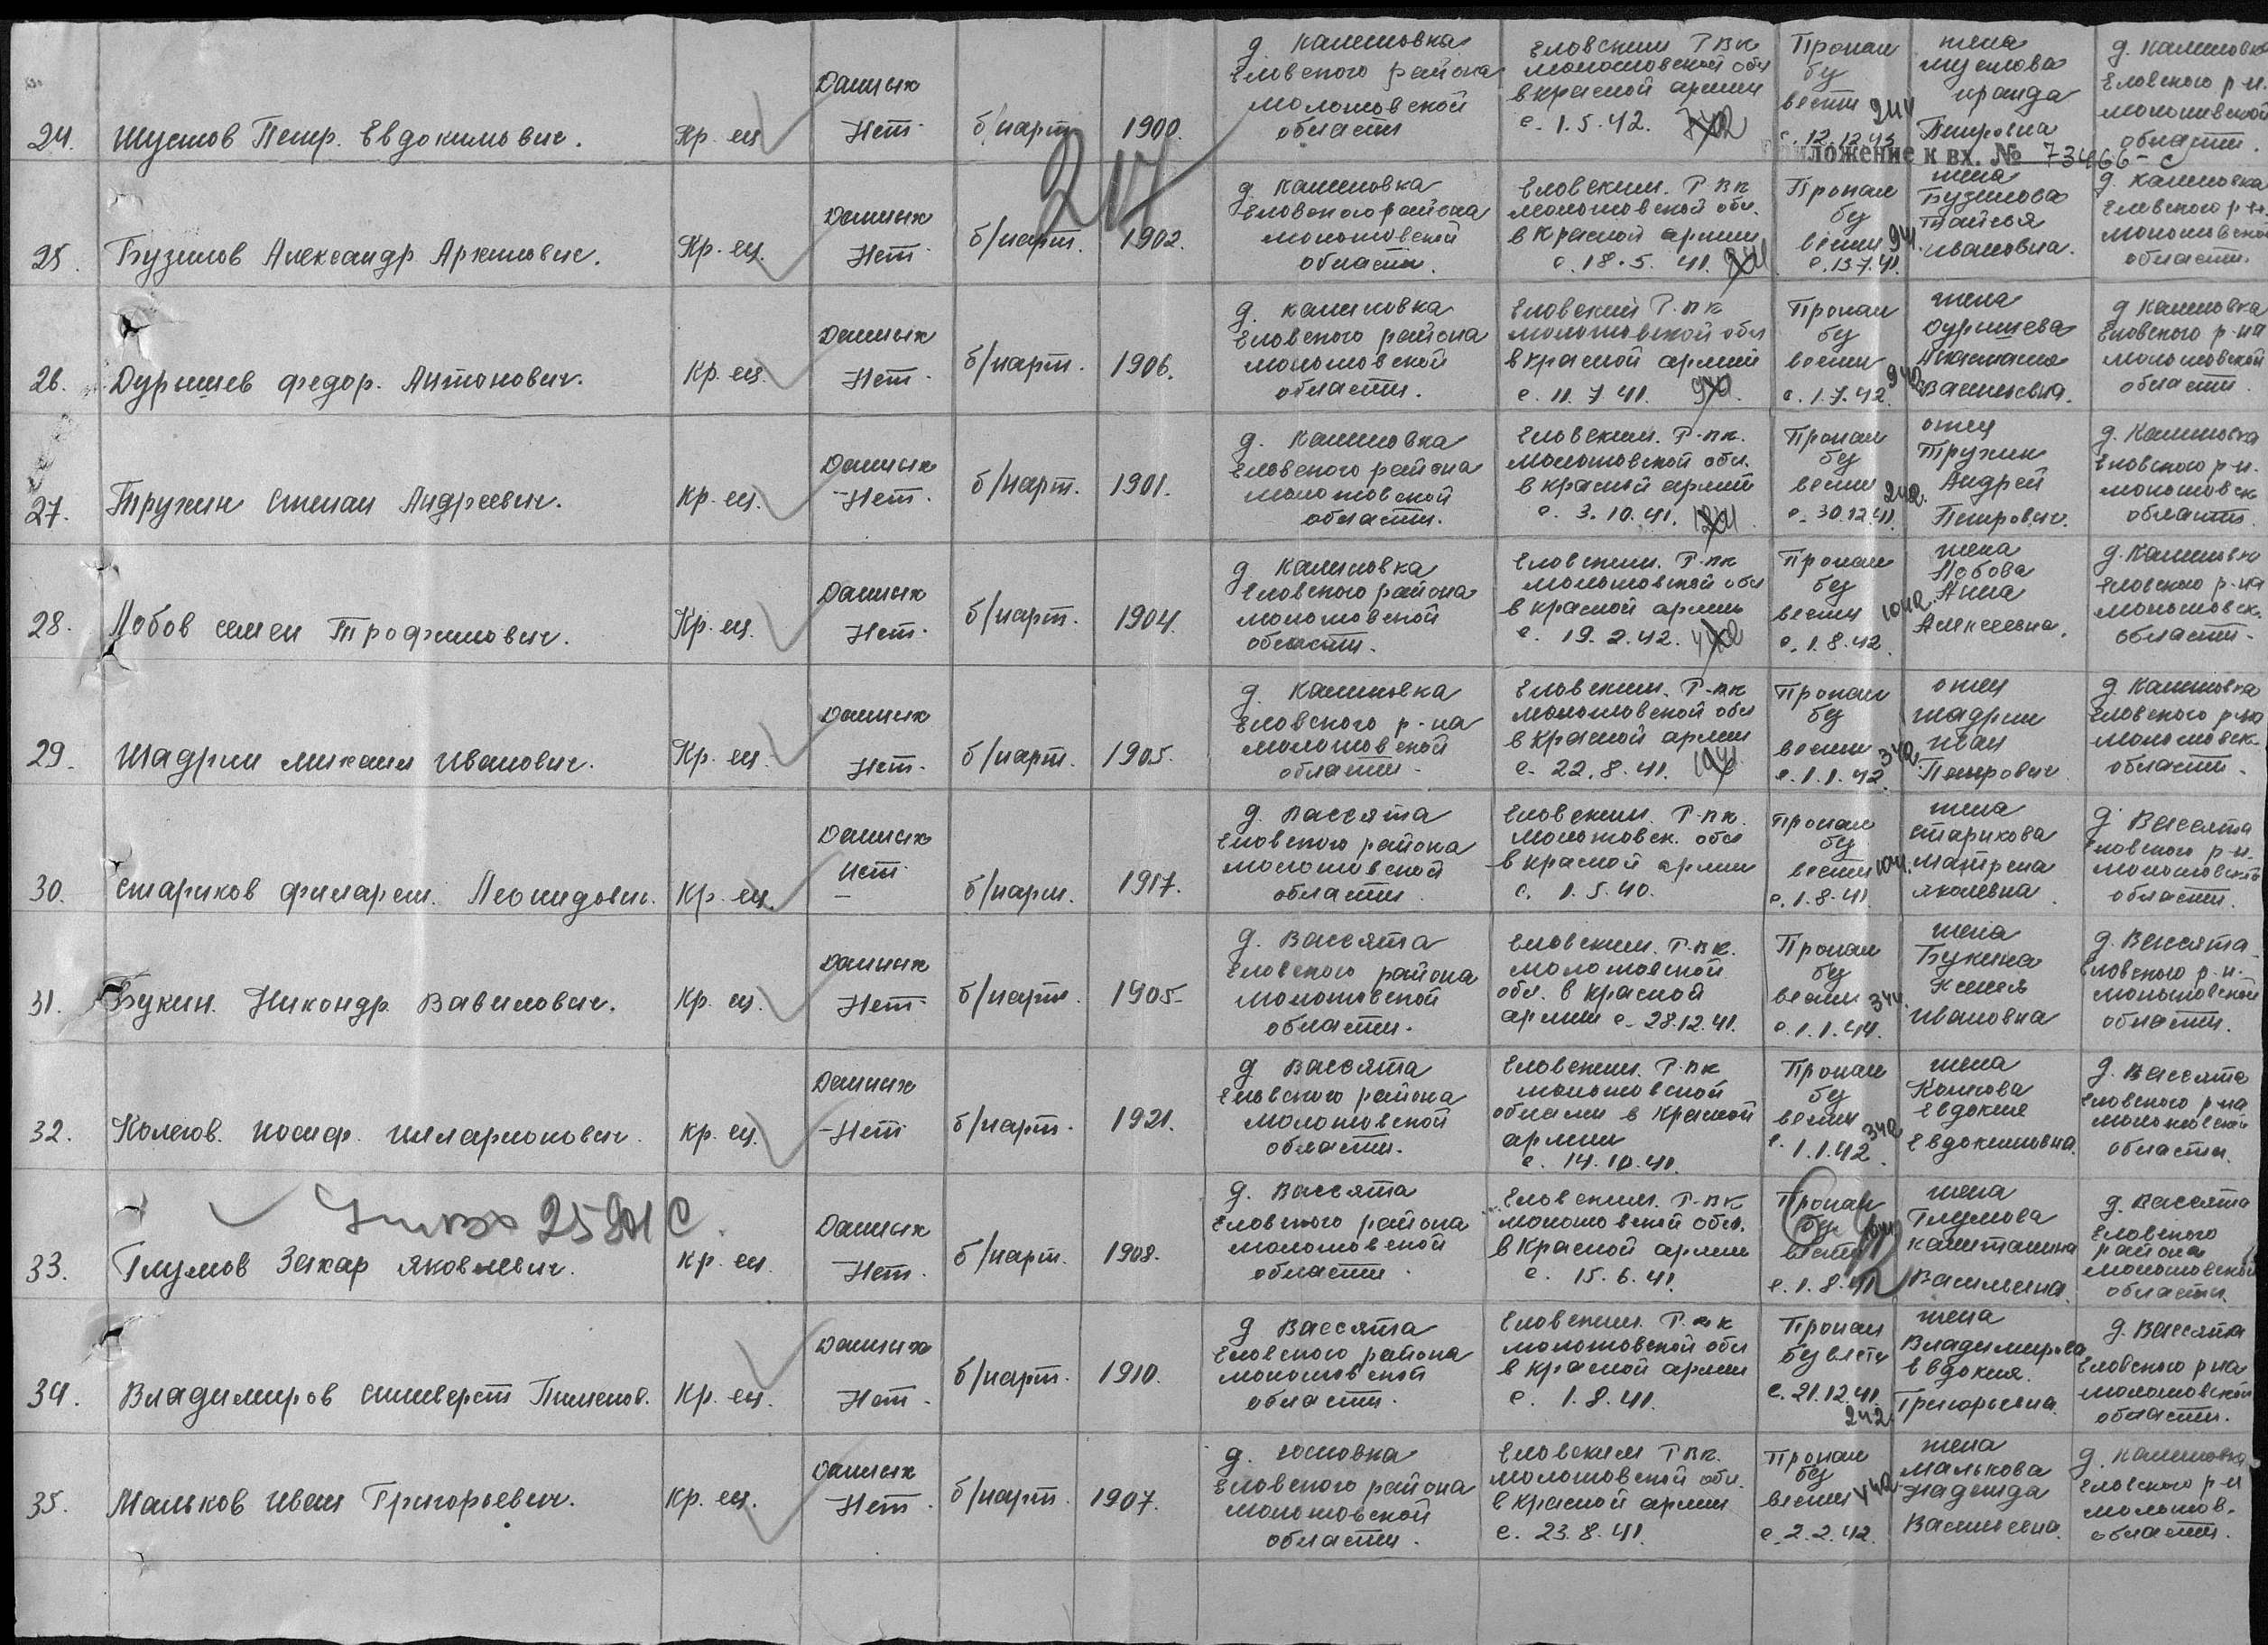 24. Шустов Петр. Евдокимович. Кр. ец Данных Нет. б/парт. 1900. д. Калиновка Еловского района молотовской области Еловским РВК молотовской обл в красной армии с. 1.5.42. Пропал без вести с. 12.12.43 жена шустова Ираида Петровна д. Калиновка Еловского р-н. молотовской области.
217
Приложение к вх. № 73466-с
25. Бузилов Александр Архипович. Кр. ец. Данных Нет. б/парт. 1902. д. Калиновка Еловского района молотовской области. Еловским. РВК молотовской обл. в Красной армии с. 18.5.41. Пропал без вести 941. с. 13.7.41. жена Бузилова Таисья ивановна. д. Калиновка Еловского р-н. молотовской области.
26. Дурышев федор. Антонович. Кр. ец. Данных Нет. б/парт. 1906. д. Калиновка Еловского района молотовской области. Еловским Р.ВК молотовской обл в красной армии с. 11.7.41. Пропал без вести 942 с. 1.7.42. жена дурышева Анастасия Васильевна. д Калиновка Еловского р-на молотовской области.
27. Тружин степан Андреевич. Кр. ец. Данных Нет. б/парт. 1901. д. Калиновка Еловского района молотовской области. Еловским. Р.ВК. молотовской обл. в красной армии с. 3.10.41. Пропал без вести 242. с. 30.12.41. отец Тружин Андрей Петрович. д. Калиновка Еловского р-н. молотовск области.
28. Лобов семен Трофимович. Кр. ец. Данных Нет. б/парт. 1904. д. Калиновка Еловского района молотовской области. Еловским. Р.ВК молотовской обл в красной армии с. 19.2.42. Пропал без вести 1042 с. 1.8.42. жена Лобова Анна Алексеевна. д. Калиновка Еловского р-на молотовск. области.
29. Шадрин михаил иванович. Кр. ец. Данных Нет. б/парт. 1905. д. Калиновка Еловского р-на молотовской области. Еловским. Р.ВК молотовской обл в красной армии с. 22.8.41. Пропал без вести 342. с. 1.1.42. отец шадрин иван Петрович д. Калиновка Еловского р-на молотовск. области.
30. стариков филарет. Леонидович. Кр. ец. Данных Нет. б/парт. 1917. д. Вассята Еловского района молотовской области Еловским. Р.ВК. молотовск. обл в красной армии с. 1.5.40. Пропал без вести 1041. с. 1.8.41. жена старикова матрена яковлевна. д Вассята Еловского р-н. молотовской области.
31. Букин. Никондр. Вавилович. Кр. ец. Данных Нет. б/парт. 1905. д. Вассята Еловского района молотовской области. Еловским. Р.ВК. молотовской обл. в красной армии с. 28.12.41. Пропал без вести 344. с. 1.1.44. жена Букина ивановна д. Вассята Еловского р-н. молотовской области.
32. Колегов. иосиф. илларионович. Кр. ец. Данных Нет. б/парт. 1921. д Вассята Еловского района молотовской области. Еловским. Р.ВК молотовской области в красной армии с. 14.10.41. Пропал без вести 342 с. 1.1.42. жена Евдокия Евдокимовна. д. Вассята Еловского р-на молотовской области.
33. Глумов Захар яковлевич. Кр. ец. Данных Нет. б/парт. 1908. д. Вассята Еловского района молотовской области. Еловским. Р.ВК молотовской обл. в Красной армии с. 15.6.41. Пропал без вести с. 1.8.41 жена Глумова Капиталина Васильевна. д. Вассята Еловского района молотовской области.
34. Владимиров сильверст Пименов. Кр. ец. Данных Нет. б/парт. 1910. д Вассята Еловского района молотовской области. Еловским. Р.ВК молотовской обл в красной армии с. 1.8.41. Пропал без вести с. 21.12.41. 242. жена Владимирова Евдокия. Григорьевна. д. Вассята Еловского р-на молотовской области.
35. Мальков иван Григорьевич. Кр. ец. Данных Нет. б/парт. 1907. д. Еловского района молотовской области. Еловским РВК. молотовской обл. в красной армии с. 23.8.41. Пропал без вести 442. с. 2.2.42. жена малькова Надежда Васильевна. д. Калиновка Еловского р-н молотов. области.